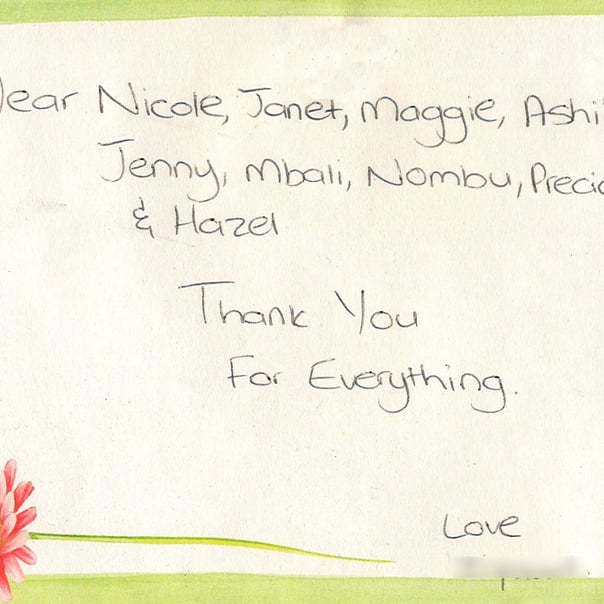 Dear Nicole, Janet, Maggie,
Jenny, Mbali, Nombu,
& Hazel
Thank You
For Everything.
Love